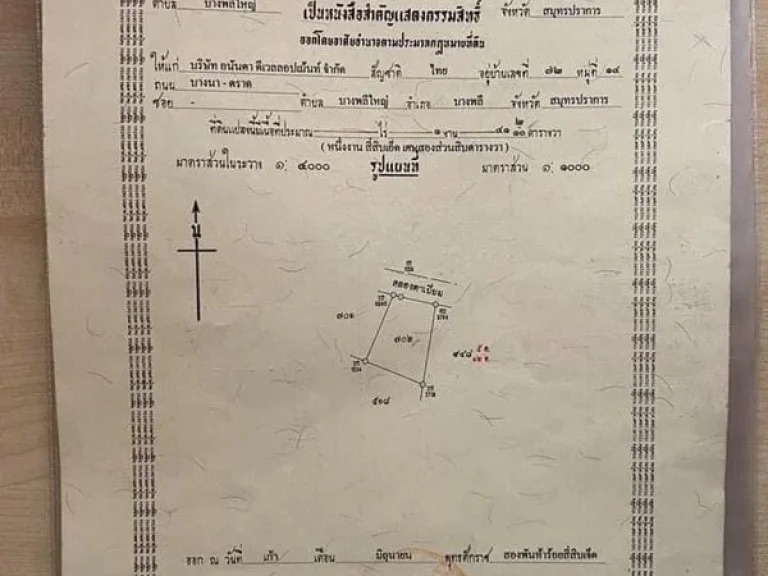 ตำบล บางพลีใหญ่ จังหวัด สมุทรปราการ
เป็นหนังสือสำคัญแสดงกรรมสิทธิ์
ออกโดยอาศัยอำนาจตามประมวลกฎหมายที่ดิน
ให้แก่ บริษัท อนันดา ดีเวลลอปเม้นท์ จำกัด สัญชาติ ไทย อยู่บ้านเลขที่ ๗๒ หมู่ที่ ๑๔
ถนน บางนา - ตราด
ซอย - ตำบล บางพลีใหญ่ อำเภอ บางพลี จังหวัด สมุทรปราการ
ที่ดินแปลงนี้มีเนื้อที่ประมาณ - ไร่ ๑ งาน ๔๑ ๒/๑๐ ตารางวา
( หนึ่งงาน สี่สิบเอ็ด เศษสองส่วนสิบตารางวา )
มาตราส่วนในระวาง ๑: ๔๐๐๐ รูปแผนที่ มาตราส่วน ๑: ๑๐๐๐
น
คลองตาเปี่ยม
๗๐๑
๗๐๒
๙๔๘
๕๑๘
ออก ณ วันที่ เก้า เดือน มิถุนายน พุทธศักราช สองพันห้าร้อยสี่สิบเจ็ด